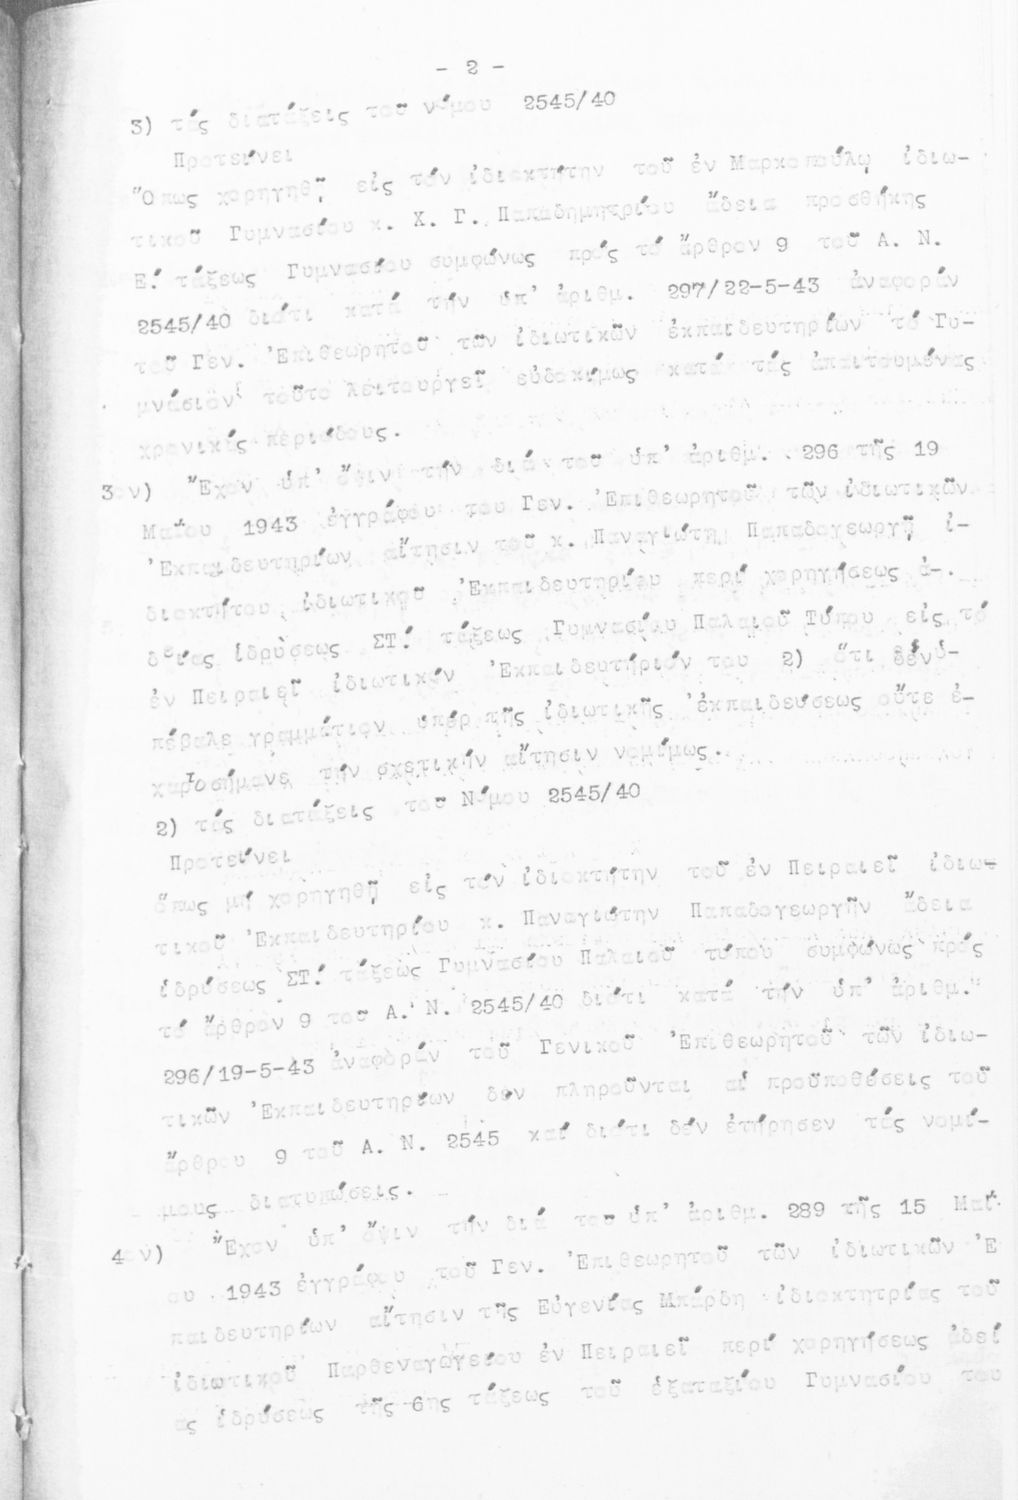 - 2 -
3) τάς διατάξεις τοῦ νόμου 2545/40
Προτείνει
Ὅπως χορηγηθῇ εἰς τόν ἰδιοκτήτην τοῦ ἐν Μαρκοπούλῳ ἰδιω-
τικοῦ Γυμνασίου κ. Χ. Γ. Παπαδημητρίου ἄδεια προσθήκης
Ε΄ τάξεως Γυμνασίου συμφώνως πρός τό ἄρθρον 9 τοῦ Α. Ν.
2545/40 διότι κατά τήν ὑπ' ἀριθμ. 297/22-5-43 ἀναφοράν
τοῦ Γεν. Ἐπιθεωρητοῦ τῶν ἰδιωτικῶν ἐκπαιδευτηρίων τό Γυ-
μνάσιον τοῦτο λειτουργεῖ εὐδοκίμως κατά τάς ἀπαιτουμένας
χρονικάς περιόδους.
3ον) Ἔχον ὑπ' ὄψιν τήν διά τοῦ ὑπ' ἀριθμ. 296 τῆς 19
Μαΐου 1943 ἐγγράφου του Γεν. Ἐπιθεωρητοῦ τῶν ἰδιωτικῶν
Ἐκπαιδευτηρίων αἴτησιν τοῦ κ. Παναγιώτη Παπαδογεωργῆ ἰ-
διοκτήτου ἰδιωτικοῦ Ἐκπαιδευτηρίου περί χορηγήσεως ἀ-
δείας ἱδρύσεως ΣΤ΄ τάξεως Γυμνασίου Παλαιοῦ Τύπου εἰς τό
ἐν Πειραιεῖ ἰδιωτικόν Ἐκπαιδευτήριόν του 2) ὅτι δέν ὑ-
πέβαλε γραμμάτιον ὑπέρ τῆς ἰδιωτικῆς ἐκπαιδεύσεως οὔτε ἐ-
χαρτοσήμανε τήν σχετικήν αἴτησιν νομίμως.
2) τάς διατάξεις τοῦ Νόμου 2545/40
Προτείνει
ὅπως μή χορηγηθῇ εἰς τόν ἰδιοκτήτην τοῦ ἐν Πειραιεῖ ἰδιω-
τικοῦ Ἐκπαιδευτηρίου κ. Παναγιώτην Παπαδογεωργῆν ἄδεια
ἱδρύσεως ΣΤ΄ τάξεως Γυμνασίου Παλαιοῦ τύπου συμφώνως πρός
τό ἄρθρον 9 του Α. Ν. 2545/40 διότι κατά τήν ὑπ' ἀριθμ.
296/19-5-43 ἀναφοράν τοῦ Γενικοῦ Ἐπιθεωρητοῦ τῶν ἰδιω-
τικῶν Ἐκπαιδευτηρίων δέν πληροῦνται αἱ προϋποθέσεις τοῦ
ἄρθρου 9 τοῦ Α. Ν. 2545 καί διότι δέν ἐτήρησεν τάς νομί-
μους διατυπώσεις.
4ον) Ἔχον ὑπ' ὄψιν τήν διά του ὑπ' ἀριθμ. 289 τῆς 15 Μαΐ
ου 1943 ἐγγράφου τοῦ Γεν. Ἐπιθεωρητοῦ τῶν ἰδιωτικῶν Ἐ
παιδευτηρίων αἴτησιν τῆς Εὐγενίας Μπάρδη ἰδιοκτητρίας τοῦ
ἰδιωτικοῦ Παρθεναγωγείου ἐν Πειραιεῖ περί χορηγήσεως ἀδεί
ας ἱδρύσεως τῆς 6ης τάξεως τοῦ ἑξαταξίου Γυμνασίου του